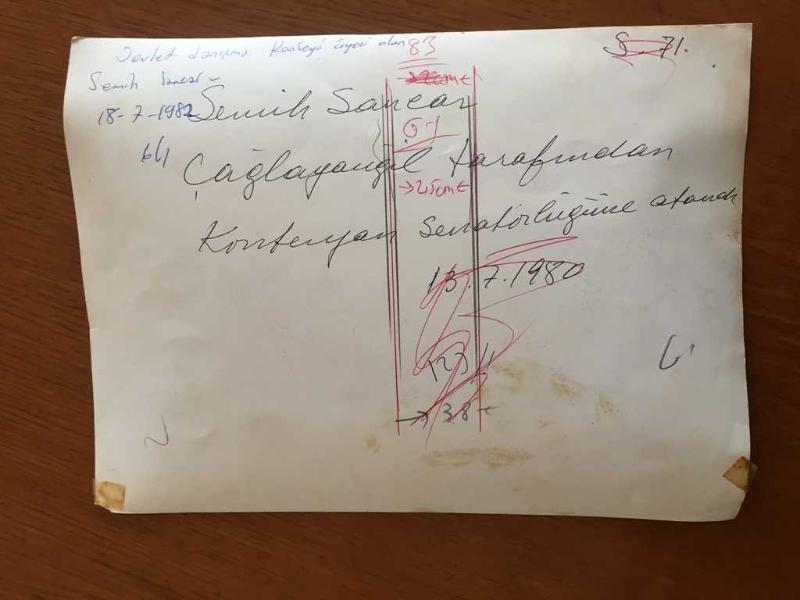 Devlet Danışma Konseyi üyesi olan 83
S. 71.
Semih Sancar
18-7-1982
6/1
Semih Sancar
Çağlayangil tarafından
→ 2,5 cmt
Kontenjan Senatörlüğüne atandı
13.7.1980
→ 38